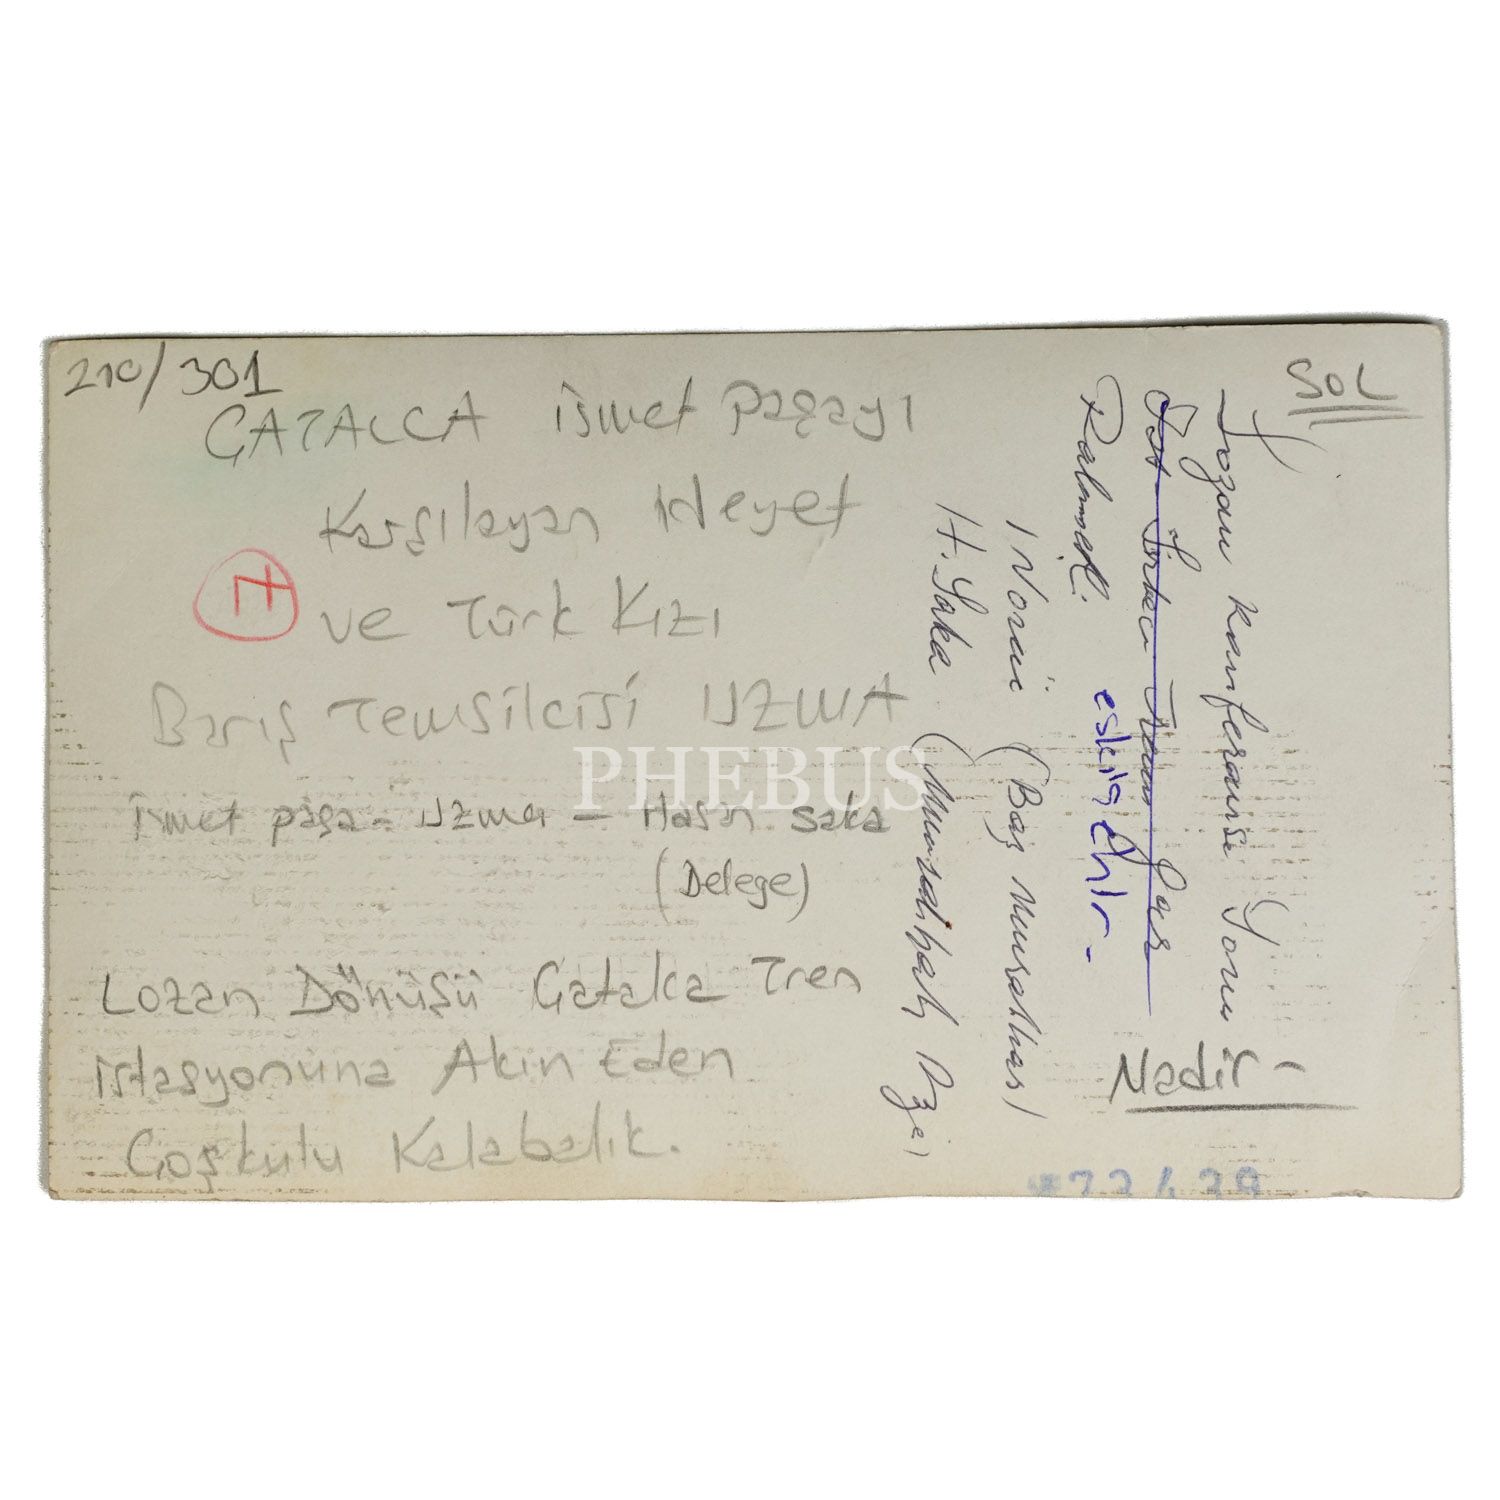 210/301
SOL
ÇATALCA İsmet Paşayı
Karşılayan Heyet
ve Türk Kızı
Barış Temsilcisi UZMA
İsmet paşa - UZMA - Hasan Saka
(Delege)
Lozan Dönüşü Çatalca Tren
istasyonuna Akın Eden
Coşkulu Kalabalık.
Lozan Konferansı Sonu
İst. Sirkeci Tren Gar
Eskişehir -
İ Nönü (Baş Murahhas)
H. Saka (Murahhas
Nadir -
PHEBUS